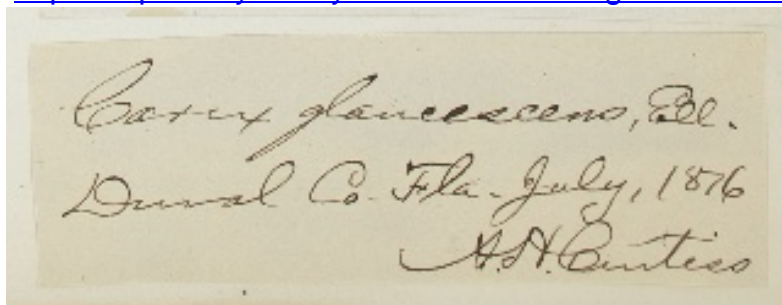 Carex glaucescens, Ell.
Duval Co. Fla. July, 1876
A.H. Curtiss